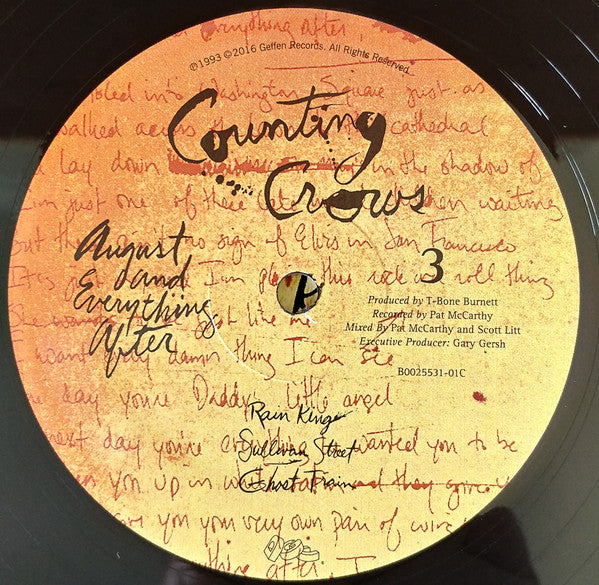 everything after,
℗1993 ©2016 Geffen Records. All Rights Reserved.
into Washington Square just as
walked across the cathedral
lay down in the shadow of
I'm just one of these waiting
but no sign of Elvis in San Francisco
this rock and roll thing
Counting
Crows
August
and
Everything
After
3
Produced by T-Bone Burnett
Recorded by Pat McCarthy
Mixed By Pat McCarthy and Scott Litt
Executive Producer: Gary Gersh
B0025531-01C
just like me
want every damn thing I can see
day you're Daddy's little angel
next day you're everything wanted you to be
you up in and they give
give you your very own pair of
everything after, I
Rain King
Sullivan Street
Ghost Train